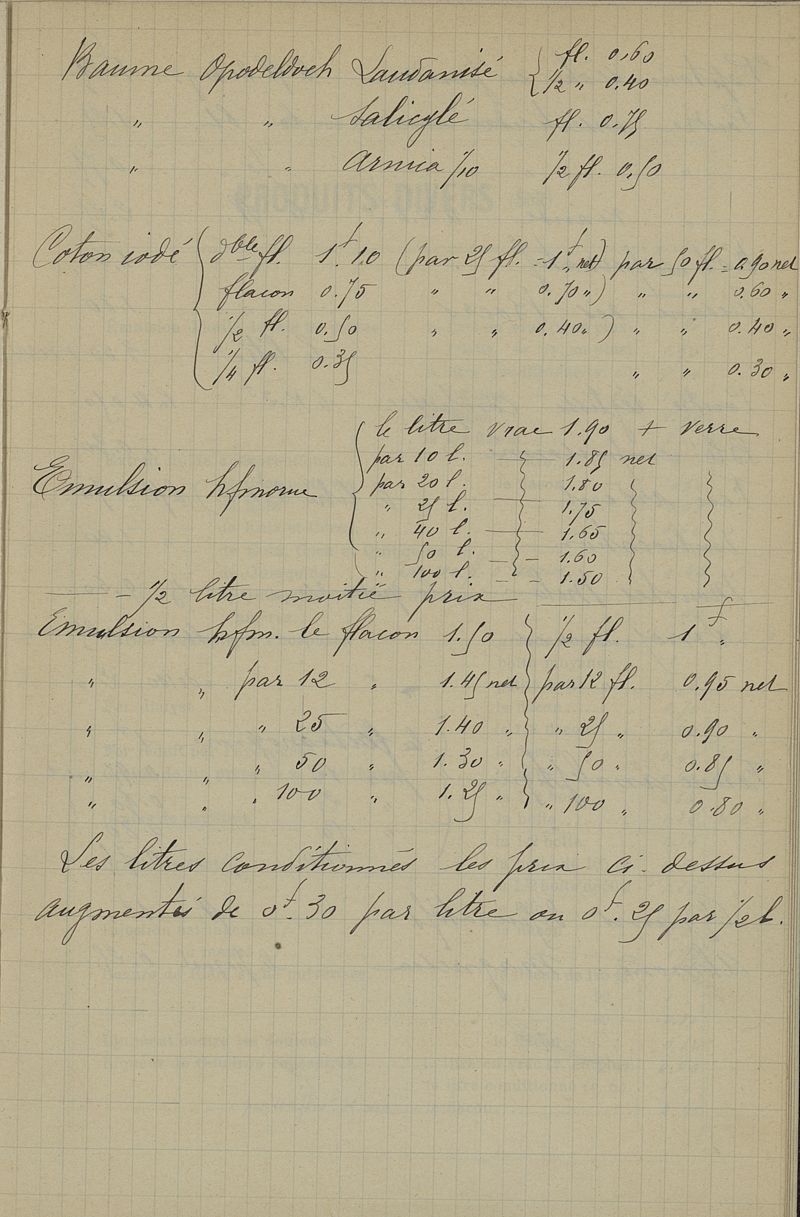 Baume Opodeldoch Laudanisé { fl. 0.60
½ " 0.40
" " Salicylé fl. 0.75
" " Arnica 1/10 ½ fl. 0.50
Coton iodé { dble fl. 1f.10 (par 25 fl. = 1f " net) par 50 fl. = 0.90 net
flacon 0.75 " " 0.70 ") " " 0.60 "
½ fl. 0.50 " " 0.40 ") " " 0.40 "
¼ fl. 0.35 " " 0.30 "
le litre vrac 1.90 + verre
par 10 l. — 1.85 net
Emulsion { par 20 l. 1.80
" 25 l. — 1.75
" 40 l. — 1.65
" 50 l. — 1.60
" 100 l. — 1.50
— ½ litre moitié prix —
Emulsion hfm. le flacon 1.50 } ½ fl. 1f "
" " par 12 " 1.45 net } par 12 fl. 0.95 net
" " " 25 " 1.40 " } " 25 " 0.90 "
" " " 50 " 1.30 " } " 50 " 0.85 "
" " " 100 " 1.25 " } " 100 " 0.80 "
Les litres conditionnés les prix ci-dessus
augmentés de 0f.30 par litre ou 0f.25 par ½ l.